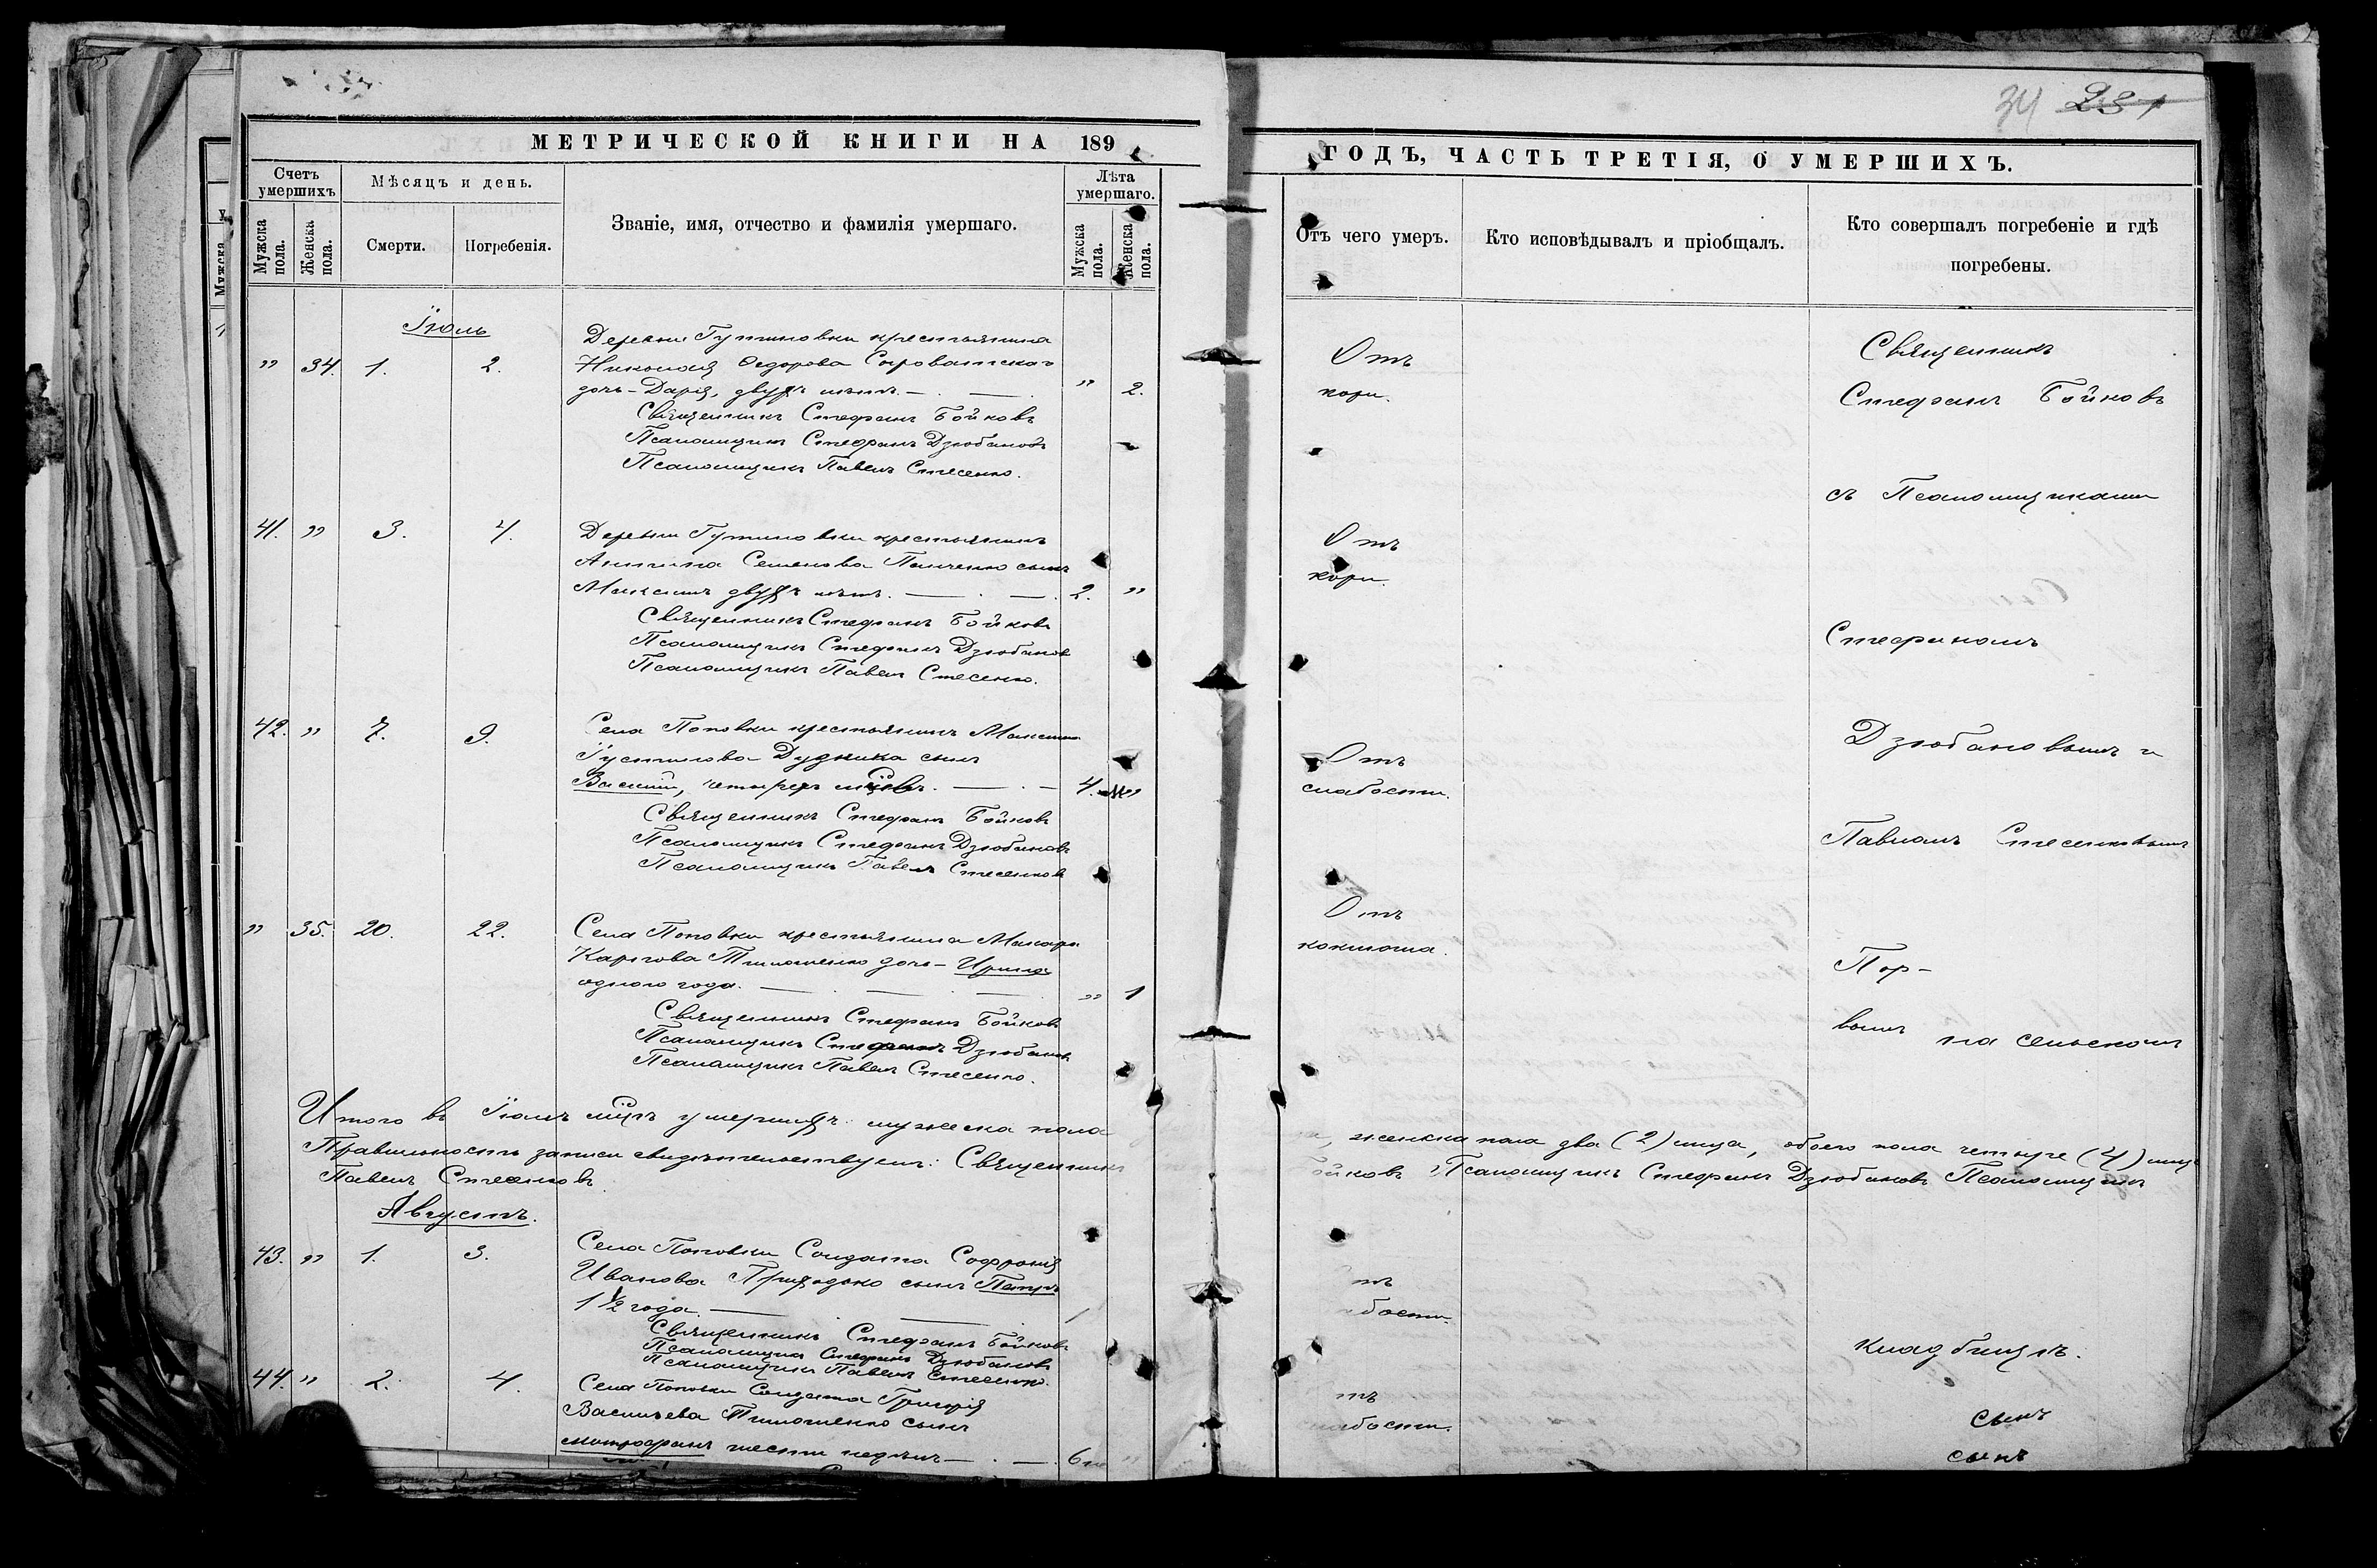 34 231
МЕТРИЧЕСКОЙ КНИГИ НА 189
ГОДЪ, ЧАСТЬ ТРЕТІЯ, О УМЕРШИХЪ.
Счетъ умершихъ.
Мѣсяцъ и день.
Званіе, имя, отчество и фамилія умершаго.
Лѣта умершаго.
Мужска пола.
Женска пола.
Смерти.
Погребенія.
Мужска пола.
Женска пола.
Отъ чего умеръ.
Кто исповѣдывалъ и пріобщалъ.
Кто совершалъ погребеніе и гдѣ
погребены.
Іюль
Деревни Гутниковки крестьянина
" 34. 1. 2. Николая Ѳедорова Сыроватскаго
дочь - Дарія, двухъ лѣтъ. " 2.
Священникъ Стефанъ Бойковъ
Псаломщикъ Стефанъ Дзюбановъ
Псаломщикъ Павелъ Стесенко.
Отъ
кори.
41. " 3. 4. Деревни крестьянинъ
Семенова сынъ
Максимъ двухъ лѣтъ. 2. "
Священникъ Стефанъ Бойковъ
Псаломщикъ Стефанъ Дзюбановъ
Псаломщикъ Павелъ Стесенко.
Отъ
кори.
42. " 7. 9. Села Поповки крестьянинъ Максима
Іустинова Дудника сынъ
Василій, четырехъ 4. "
Священникъ Стефанъ Бойковъ
Псаломщикъ Стефанъ Дзюбановъ
Псаломщикъ Павелъ Стесенковъ
Отъ
слабости.
" 35. 20. 22. Села Поповки крестьянина Макара
Карпова Тимошенко дочь - Ирина
одного года. " 1
Священникъ Стефанъ Бойковъ
Псаломщикъ Стефанъ Дзюбановъ
Псаломщикъ Павелъ Стесенко.
Отъ
коклюша.
Священникъ
Стефанъ Бойковъ
съ Псаломщиками
Стефаномъ
Дзюбановымъ и
Павломъ Стесенковымъ
на сельскомъ
Итого въ Іюлѣ умершихъ: мужеска пола
, женска пола два (2) лица, обоего пола четыре (4) лица
Правильность записи свидѣтельствуемъ: Священникъ
Псаломщикъ Стефанъ Дзюбановъ Псаломщикъ
Павелъ Стесенковъ
Августъ.
43. " 1. 3. Села Поповки Солдата Софронія
Иванова Приходько сынъ Петръ
1 ½ года. 1
Священникъ Стефанъ Бойковъ
Псаломщикъ Стефанъ Дзюбановъ
Псаломщикъ Павелъ Стесенко.
44. " 2. 4. Села Поповки Солдата Григорія
Васильева Тимошенко сынъ
Митрофанъ шести недѣль 6 н
кладбищѣ.
сынъ
сынъ